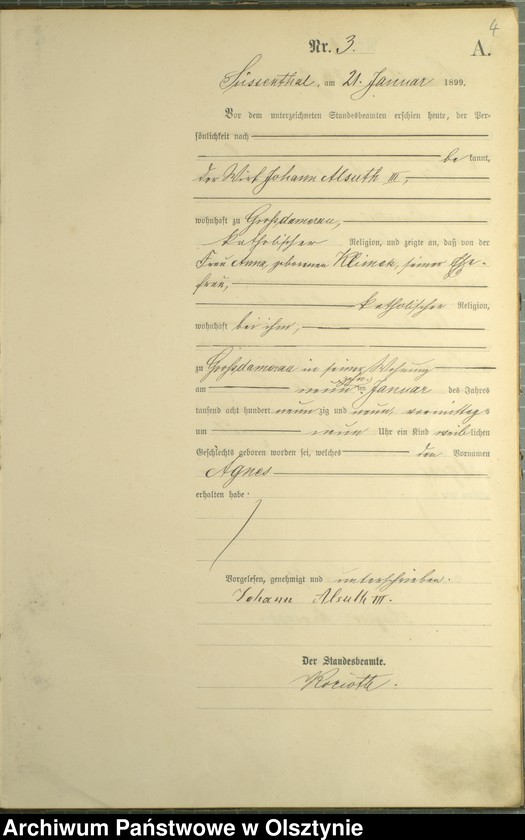 4
Nr. 3.
A.
Süssenthal, am 21. Januar 1899.
Vor dem unterzeichneten Standesbeamten erschien heute, der Per-
sönlichkeit nach
be kannt,
der Wirt Johann Alsuth III,
wohnhaft zu Großdamerau,
katholischer Religion, und zeigte an, daß von der
Frau Anna, geborenen Klimek, seiner Ehe-
frau,
katholischer Religion,
wohnhaft bei ihm,
zu Großdamerau in seiner Wohnung
am neun zehnten Januar des Jahres
tausend acht hundert neun zig und neun, vormittags
um neun Uhr ein Kind weiblichen
Geschlechts geboren worden sei, welches den Vornamen
Agnes
erhalten habe.
Vorgelesen, genehmigt und unterschrieben.
Johann Alsuth III.
Der Standesbeamte.
Korioth.
Archiwum Państwowe w Olsztynie